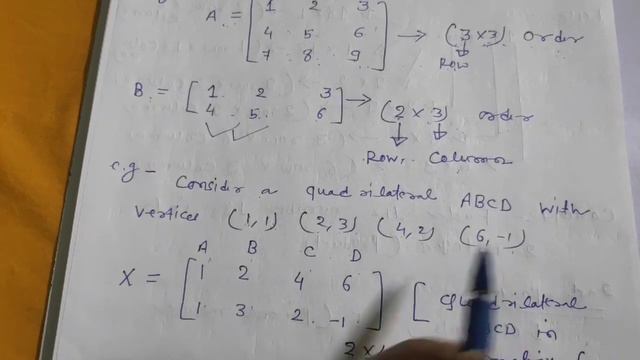 A = [1 2 3
4 5 6
7 8 9] → (3×3) order
Row
B = [1 2 3
4 5 6] → (2 × 3) order
Row, Column
e.g - Consider a quadrilateral ABCD with
vertices (1,1) (2,3) (4,2) (6,-1)
A B C D
X = [1 2 4 6
1 3 2 -1] [quadrilateral
BCD in
2 ×